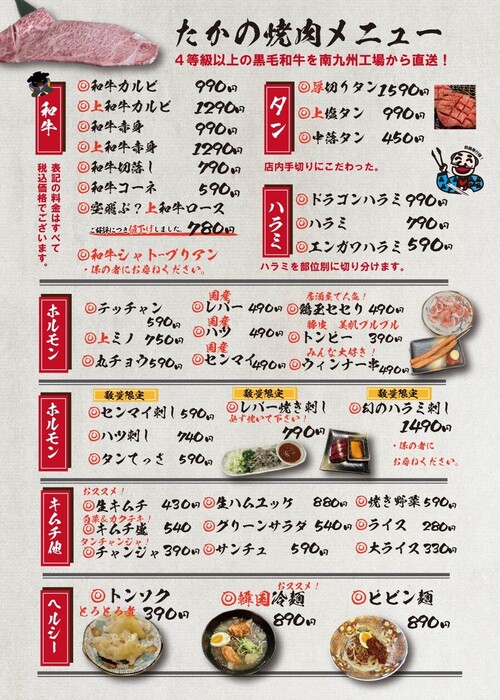 たかの焼肉メニュー
4等級以上の黒毛和牛を南九州工場から直送！
和牛
和牛カルビ 990円
上和牛カルビ 1290円
和牛赤身 990円
上和牛赤身 1290円
和牛切落し 790円
和牛コーネ 590円
空飛ぶ？上和牛ロース
ご好評につき値下げしました。780円
和牛シャトーブリアン
・係の者にお尋ねください。
表記の料金はすべて
税込価格でございます。
タン
厚切りタン 1590円
上塩タン 990円
中落タン 450円
店内手切りにこだわった。
ハラミ
ドラゴンハラミ 990円
ハラミ 790円
エンガワハラミ 590円
ハラミを部位別に切り分けます。
ホルモン
テッチャン 590円
上ミノ 750円
丸チョウ 590円
国産
レバー 490円
国産
ハツ 490円
国産
センマイ 490円
居酒屋で人気！
鶏丞セセリ 490円
豚喉 美肌プルプル
トンビー 390円
みんな大好き！
ウィンナー串 490円
ホルモン
数量限定
センマイ刺し 590円
ハツ刺し 740円
タンてっさ 590円
数量限定
レバー焼き刺し
必ず焼いて下さい！
790円
数量限定
幻のハラミ刺し
1490円
・係の者に
お尋ねください。
キムチ他
おススメ！
生キムチ 430円
白菜＆カクテキ！
キムチ盛 540
タンチャンジャ！
チャンジャ 390円
生ハムユッケ 880円
グリーンサラダ 540円
サンチュ 590円
焼き野菜 590円
ライス 280円
大ライス 330円
ヘルシー
トンソク
とろとろ煮 390円
おススメ！
韓国冷麺
890円
ビビン麺
890円